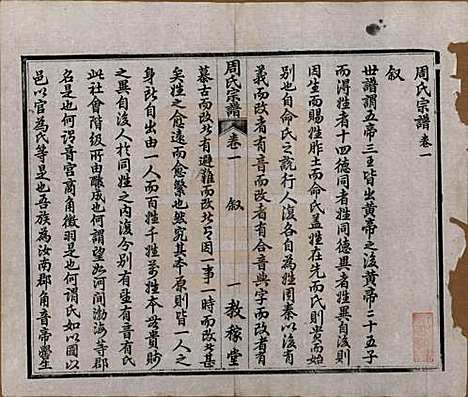 周氏宗譜卷一
叙
世譜謂五帝三王皆出黄帝之後黄帝二十五子
而得姓者十四德同者姓同德異者姓異自後則
因生而賜姓胙土而命氏盖姓在先而氏則貴而始
别也自命氏之說行人復各自為姓周秦以後有
義而改者有音而改者有合音與字而改者有
周氏宗譜
卷一
叙
一
教稼堂
慕古而改者有避難而改者因一事一時而改者甚
矣姓之愈遠而愈繁也然究其本原則皆一人之
身所自出由一人而百姓千姓萬姓本無貴賤
之異自後人於同姓之内復分别有望有音有氏
此社會階級所由釀成也何謂望如河間渤海等郡
名是也何謂音宫商角徵羽是也何謂氏如以國以
邑以官為氏等是也吾族為汝南郡角音帝嚳生